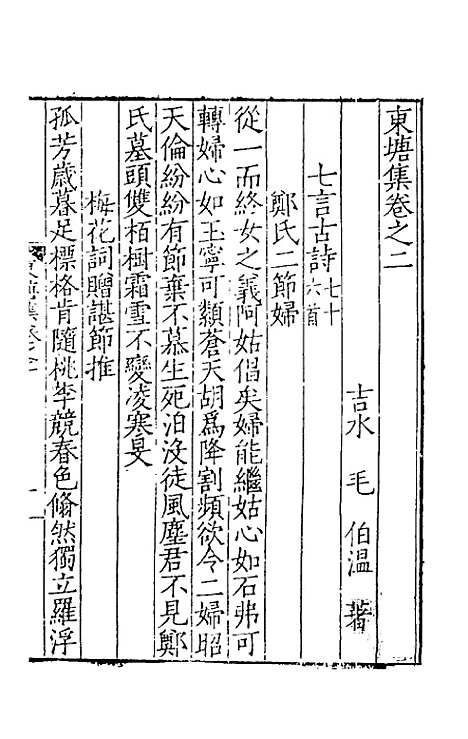 東塘集卷之二
吉水 毛 伯溫 著
七言古詩七十六首
鄭氏二節婦
從一而終女之義阿姑倡矣婦能繼姑心如石弗可
轉婦心如玉寧可纇蒼天胡爲降割頻欲令二婦昭
天倫紛紛有節棄不慕生死泊沒徒風塵君不見鄭
氏墓頭雙栢樹霜雪不變凌寒旻
梅花詞贈諶節推
孤芳歲暮足標格肯隨桃李競春色翛然獨立羅浮